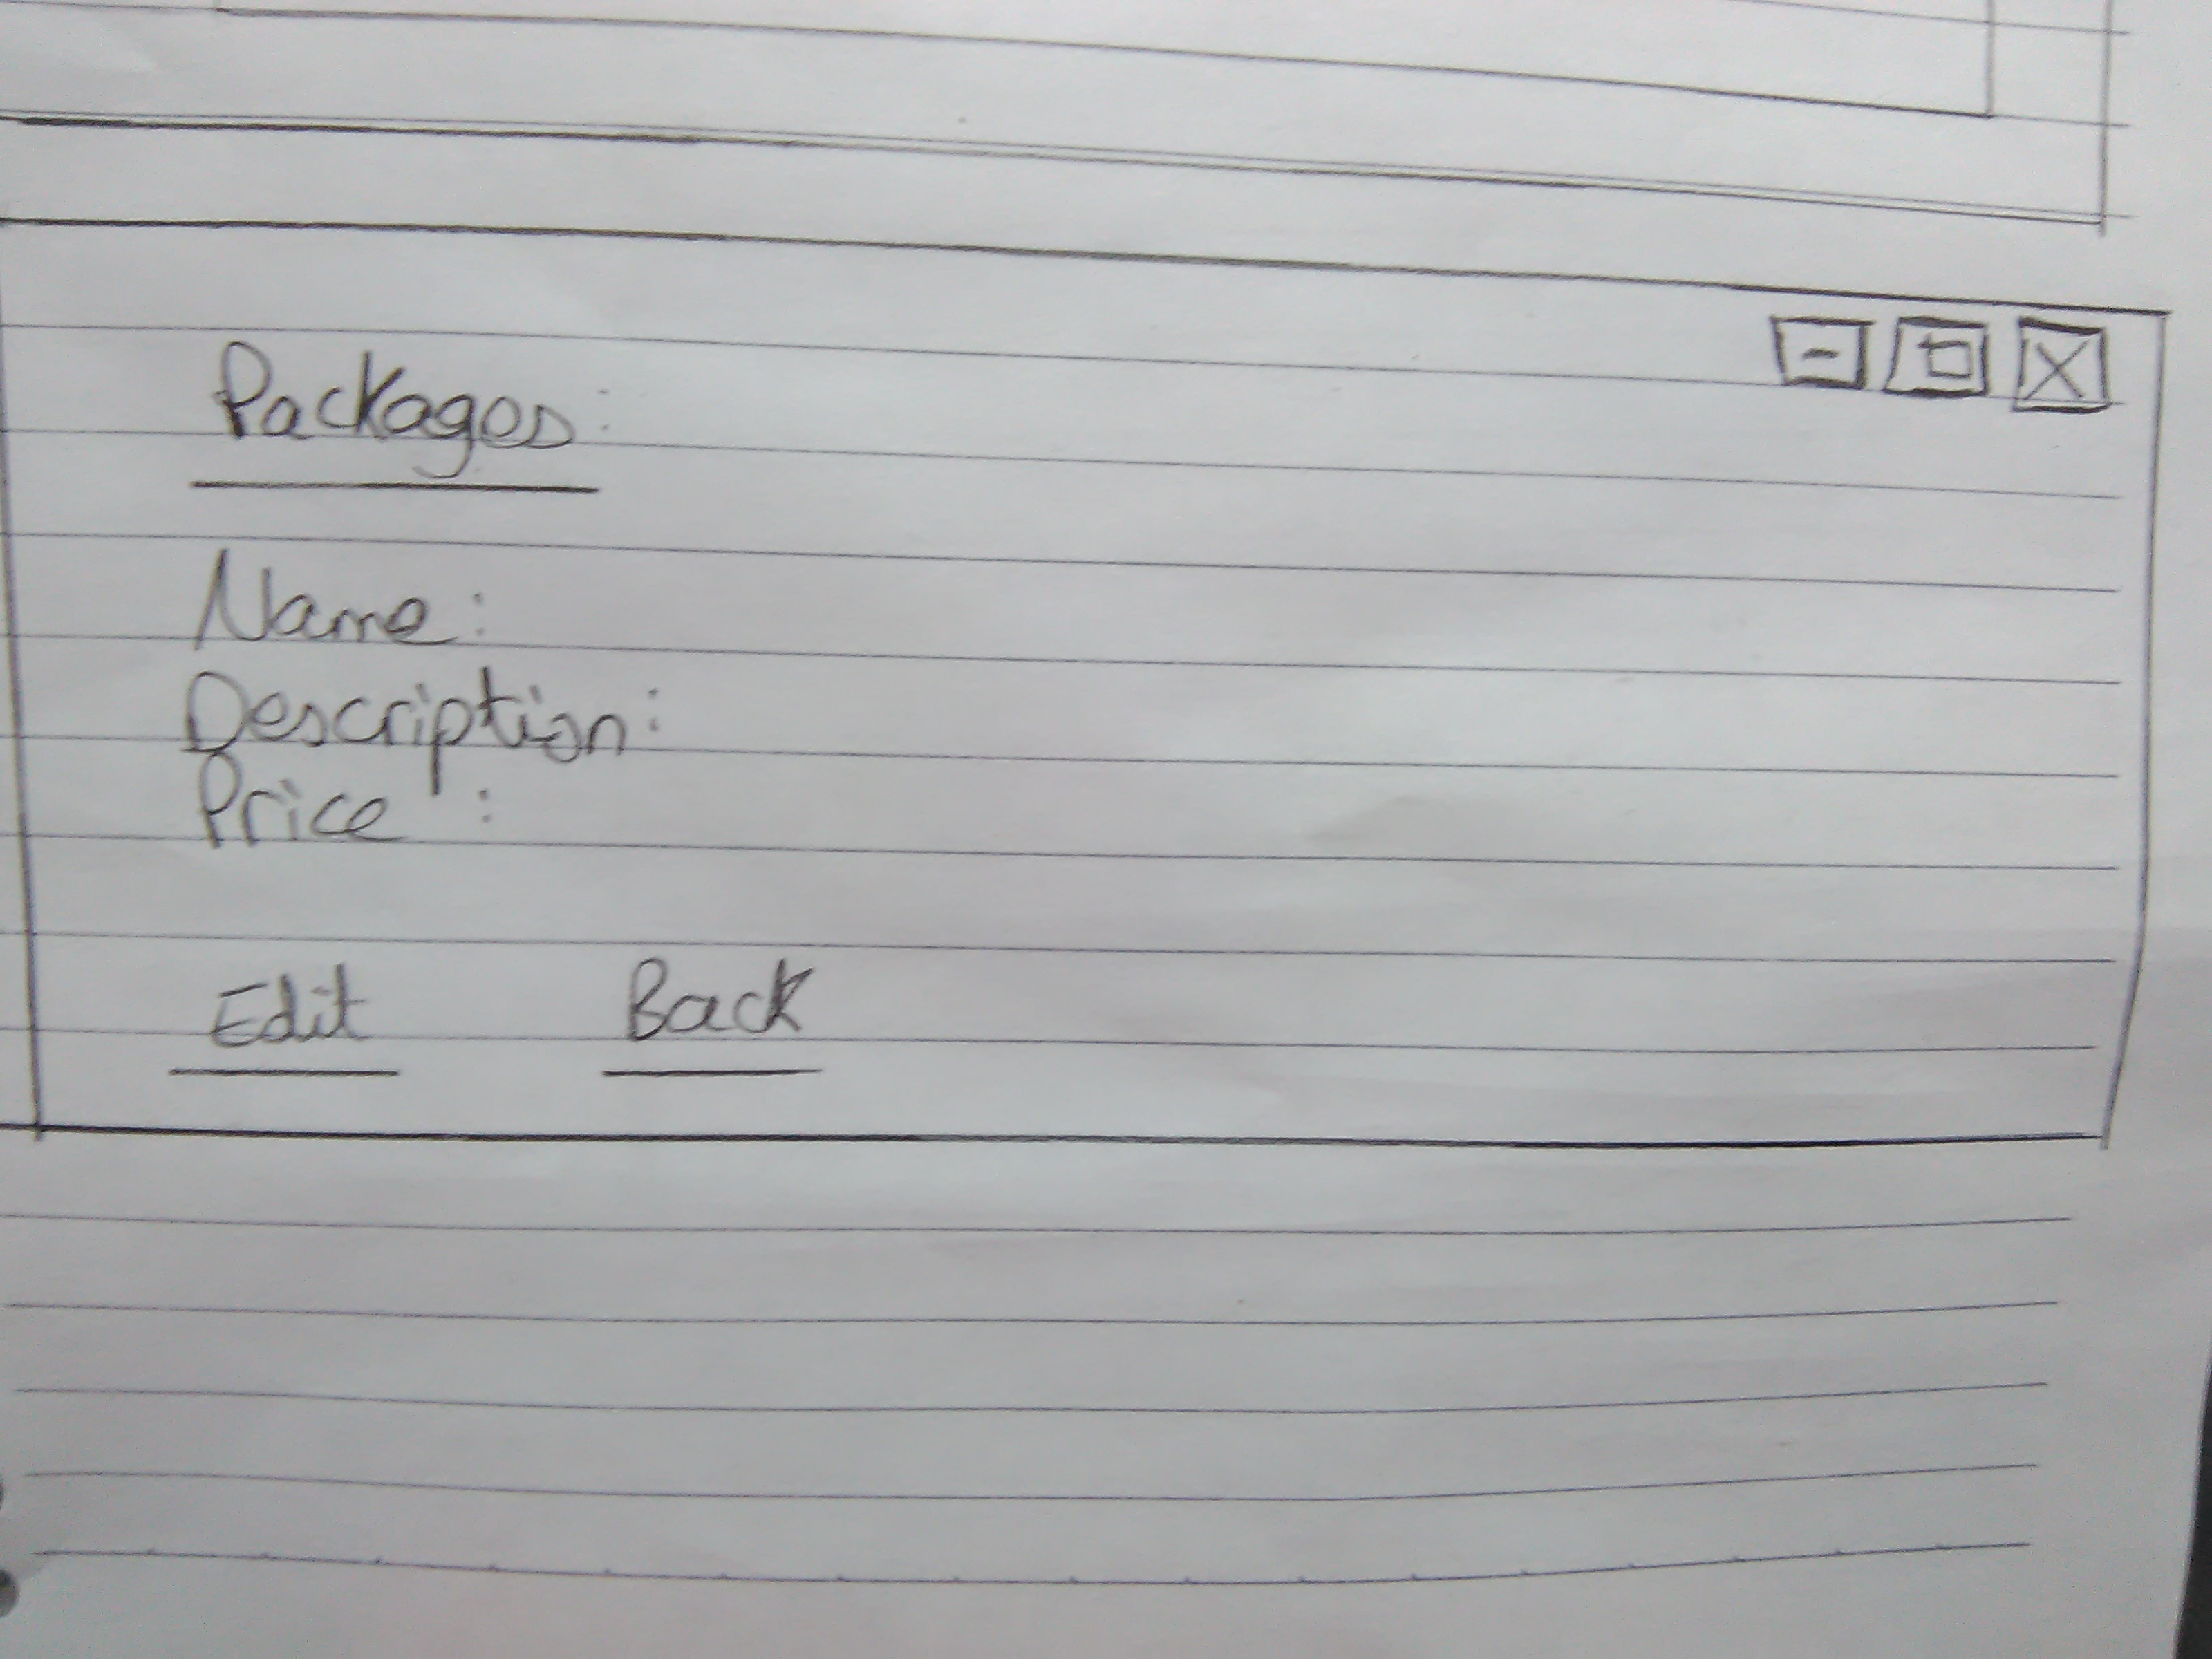 Packages:
Name:
Description:
Price :
Edit Back